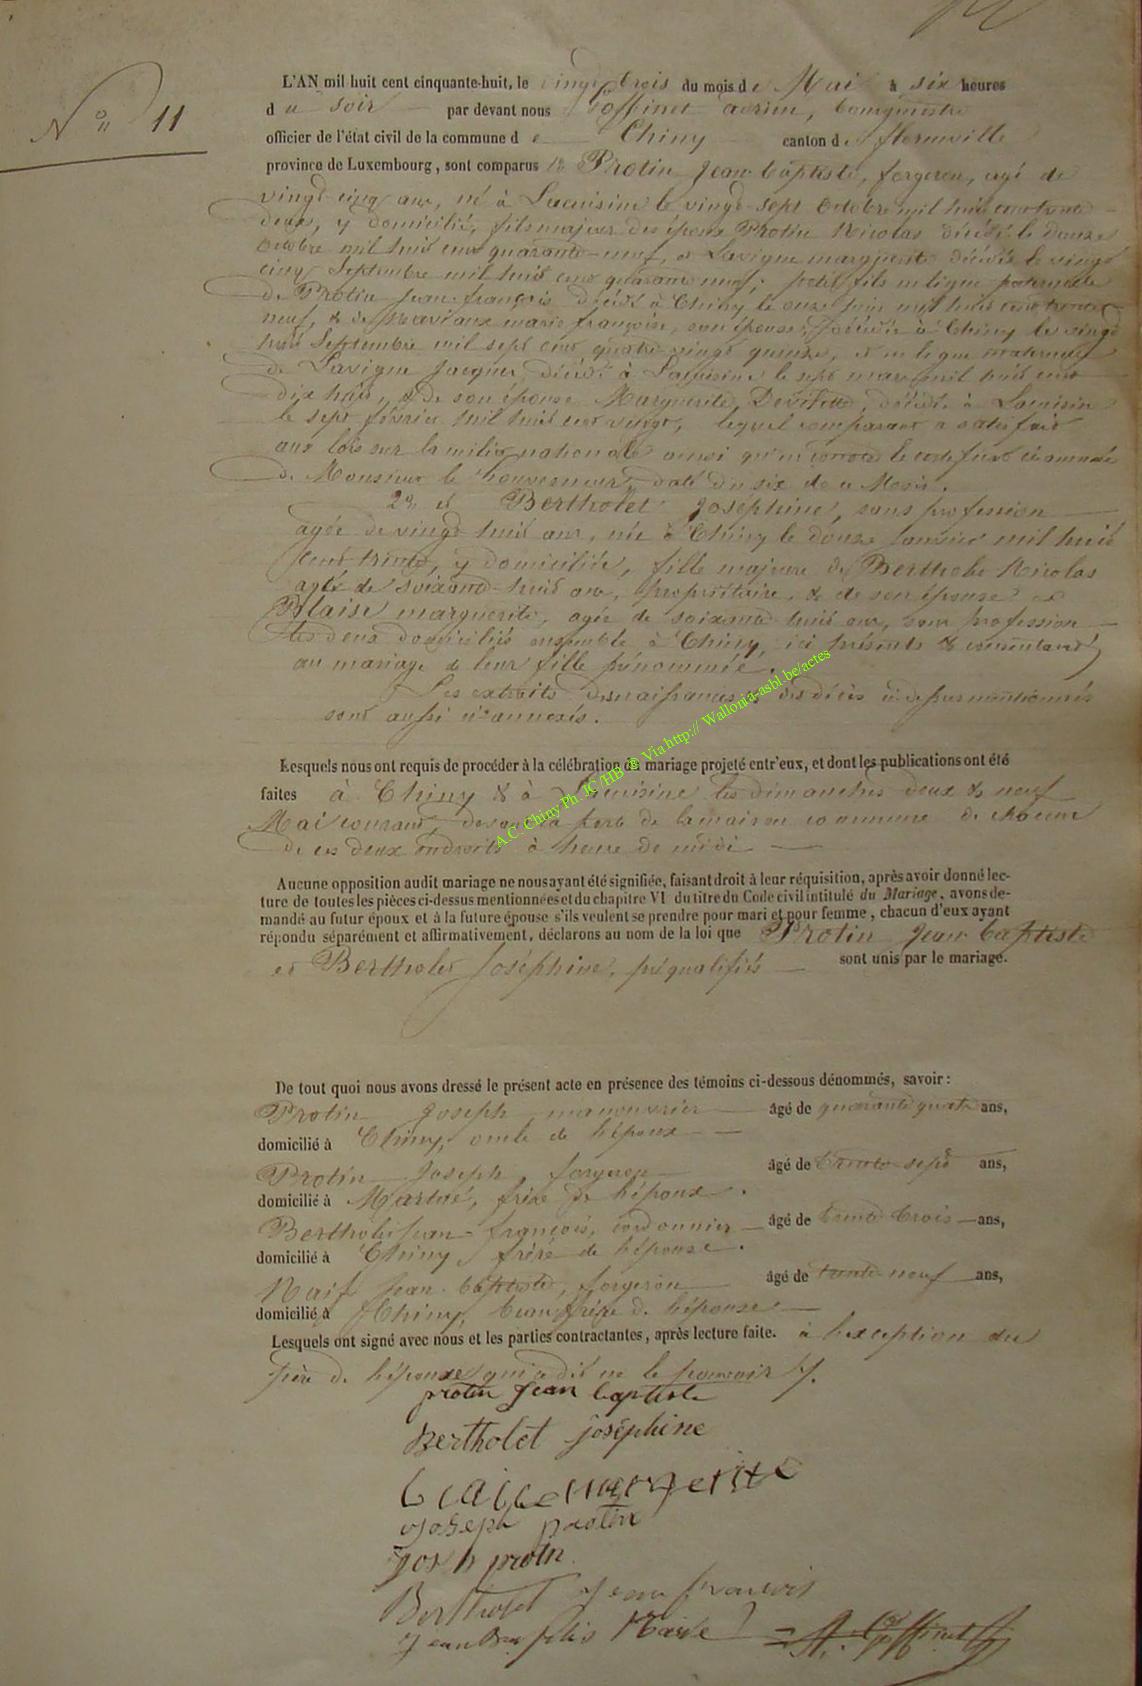 N° 11
L'AN mil huit cent cinquante-huit, le vingt trois du mois de Mai à six heures
du soir par devant nous Goffinet adrien, bourgmestre
officier de l'état civil de la commune de Chiny canton de florenville
province de Luxembourg, sont comparus 1° Protin Jean baptiste, forgeron, agé de
vingt cinq ans, né à Lacuisine le vingt-sept Octobre mil huit cent trente
deux, y domicilié, fils majeur des époux Protin Nicolas décédé le douze
Octobre mil huit cent quarante-neuf, & Lavigne marguerite décédée le vingt
cinq Septembre mil huit cent quarante neuf; petit fils en ligne paternelle
de Protin Jean-françois décédé à Chiny le onze Juin mil huit cent trente
neuf, & de marie françoise, son épouse, décédée à Chiny le vingt
huit Septembre mil sept cent quatre vingt quinze, et en ligne maternelle
de Lavigne Jacques, décédé à Lacuisine le sept mars mil huit cent
dix huit, & de son épouse Marguerite, décédée à Lacuisine
le sept février mil huit cent vingt, lequel comparant a satisfait
aux lois sur la milice nationale ainsi qu'il conste le certificat ci annexé
de Monsieur le Gouverneur, daté du six de ce Mois.
2° et Bertholet Joséphine, sans profession
agée de vingt huit ans, née à Chiny le douze Janvier mil huit
cent trente, y domiciliée, fille majeure de Bertholet Nicolas
agé de soixante-huit ans, propriétaire, & de son épouse
Blaise marguerite, agée de soixante huit ans, sans profession
les deux domiciliés ensemble à Chiny, ici présents & consentants
au mariage de leur fille prénommée.
Les extraits des naissances & des décès ci-dessus mentionnés
sont aussi ci annexés.
Lesquels nous ont requis de procéder à la célébration du mariage projeté entr'eux, et dont les publications ont été
faites à Chiny & à Lacuisine les dimanches deux & neuf
Mai courant devant la porte de la maison commune de chacun
de ces deux endroits à heure de midi
A.C. Chiny Ph. JC/HB ® Via http:// Wallonia-asbl.be/actes
Aucune opposition audit mariage ne nous ayant été signifiée, faisant droit à leur réquisition, après avoir donné lec-
ture de toutes les pièces ci-dessus mentionnées et du chapitre VI du titre du Code civil intitulé du Mariage, avons de-
mandé au futur époux et à la future épouse s'ils veulent se prendre pour mari et pour femme, chacun d'eux ayant
répondu séparément et affirmativement, déclarons au nom de la loi que Protin Jean baptiste
et Bertholet Joséphine, préqualifiés sont unis par le mariage.
De tout quoi nous avons dressé le présent acte en présence des témoins ci-dessous dénommés, savoir:
Protin Joseph manouvrier âgé de quarante quatre ans,
domicilié à Chiny, oncle de l'époux
Protin Joseph, forgeron âgé de trente-sept ans,
domicilié à Martué, frère de l'époux.
Bertholet Jean-françois, cordonnier âgé de trente trois ans,
domicilié à Chiny, frère de l'épouse.
Naisse Jean-baptiste, forgeron âgé de trente-neuf ans,
domicilié à Chiny, beau frère de l'épouse
Lesquels ont signé avec nous et les parties contractantes, après lecture faite. à l'exception du
père de l'épouse qui a dit ne le pouvoir.
protin Jean baptiste
Bertholet joséphine
blaisse margerite
joseph protin
jos h protin
Bertholet jean francois
jean Baptiste A. Goffinet